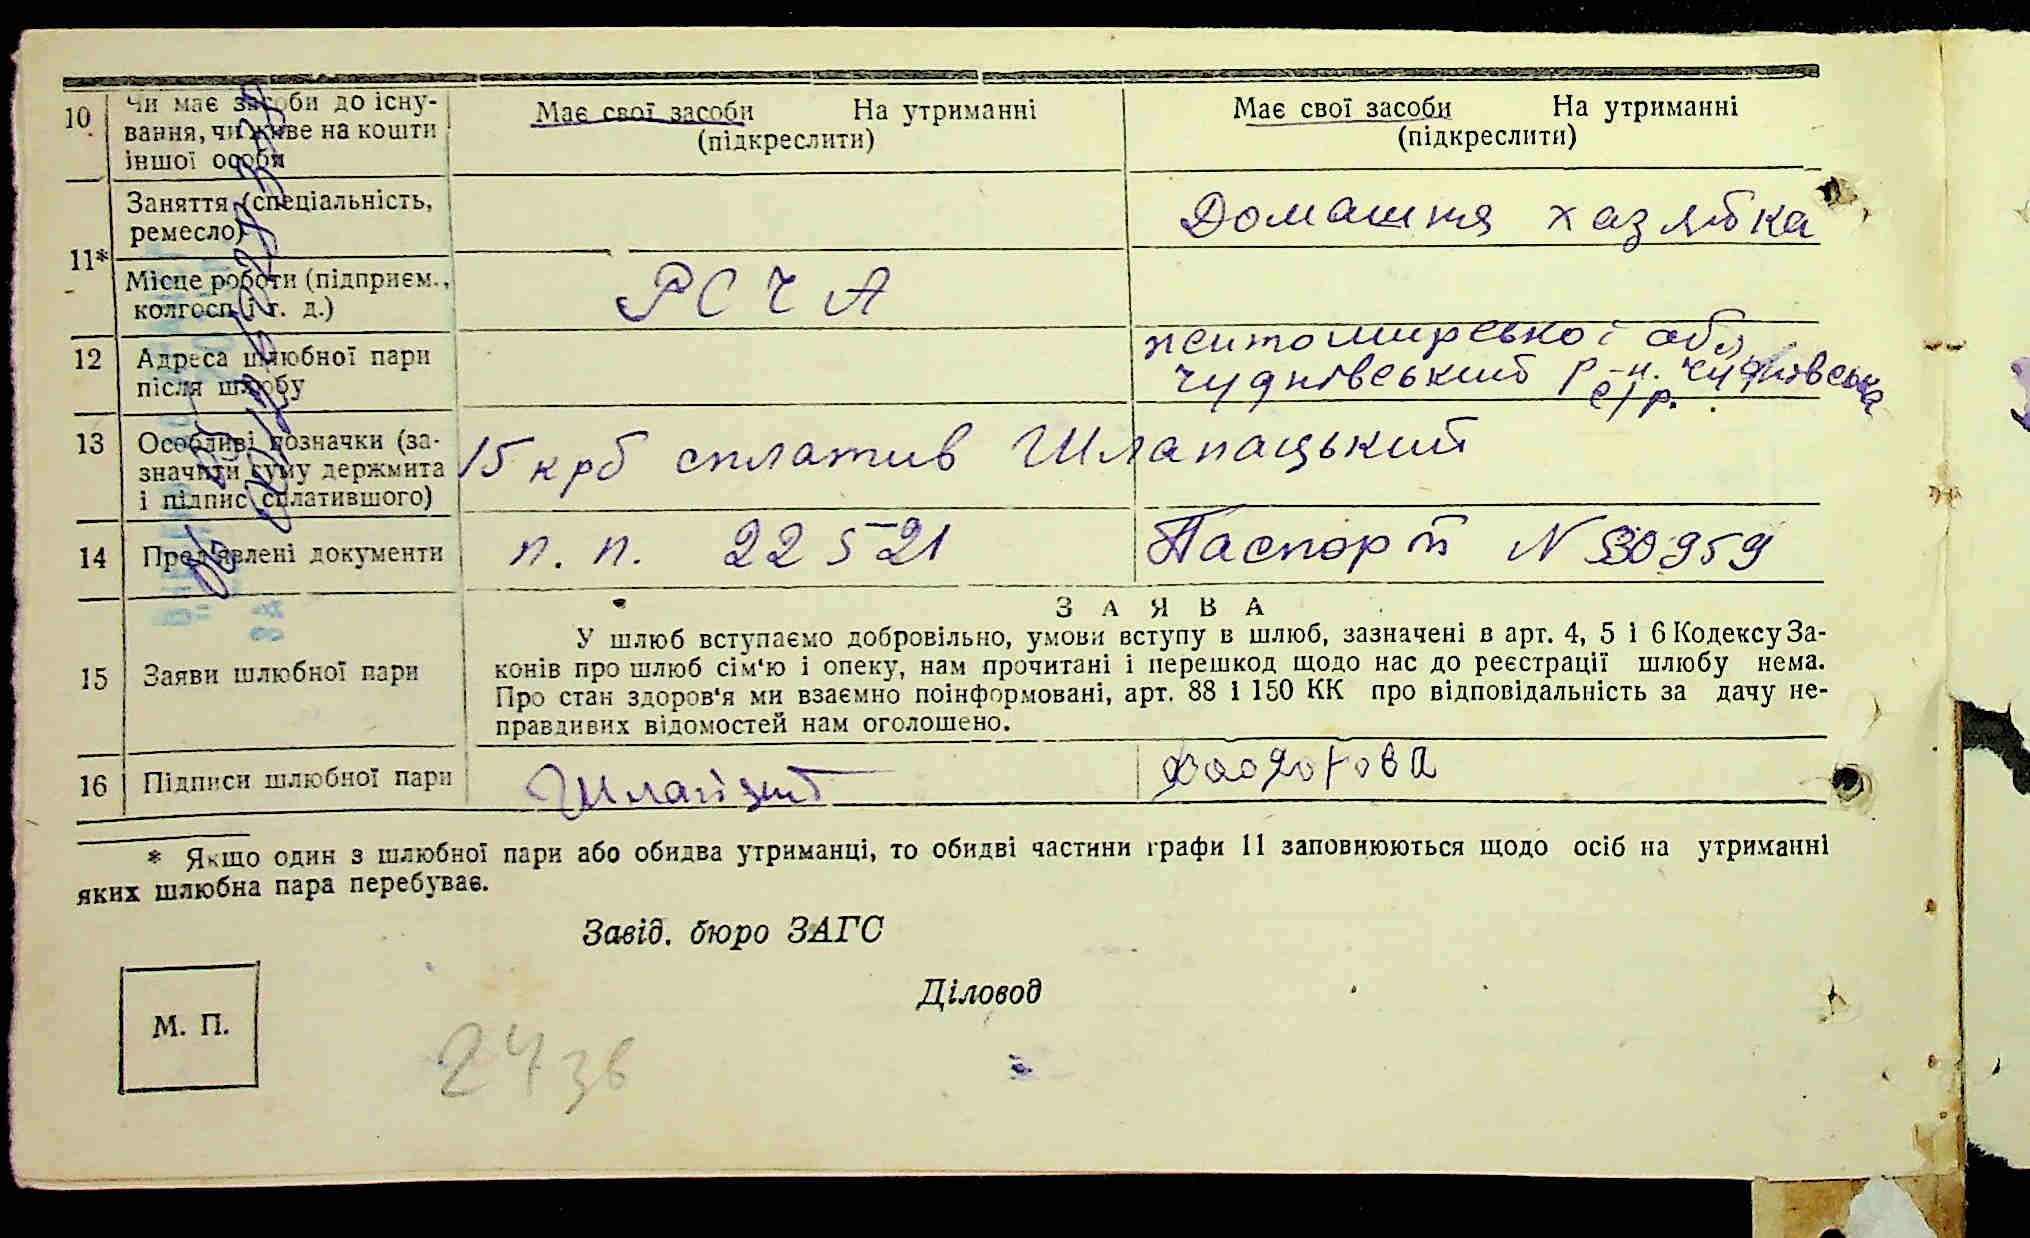 10 Чи має засоби до існу-
вання, чи живе на кошти
іншої особи
Має свої засоби На утриманні
(підкреслити)
Має свої засоби На утриманні
(підкреслити)
11*
Заняття (спеціальність,
ремесло)
Домашня хазяйка
Місце роботи (підприєм.,
колгосп і т. д.)
РСЧА
12 Адреса шлюбної пари
після шлюбу
житомирської обл.
Чуднівський р-н. Чуднівська
с/р.
13 Особливі позначки (за-
значити суму держмита
і підпис сплатившого)
15 крб сплатив Шлапацький
14 Пред'явлені документи
п. п. 22521
Паспорт N 30959
15 Заяви шлюбної пари
ЗАЯВА
У шлюб вступаємо добровільно, умови вступу в шлюб, зазначені в арт. 4, 5 і 6 Кодексу За-
конів про шлюб сім'ю і опеку, нам прочитані і перешкод щодо нас до реєстрації шлюбу нема.
Про стан здоров'я ми взаємно поінформовані, арт. 88 і 150 КК про відповідальність за дачу не-
правдивих відомостей нам оголошено.
16 Підписи шлюбної пари
* Якщо один з шлюбної пари або обидва утриманці, то обидві частини графи 11 заповнюються щодо осіб на утриманні
яких шлюбна пара перебуває.
Завід. бюро ЗАГС
Діловод
М. П.
24 зв